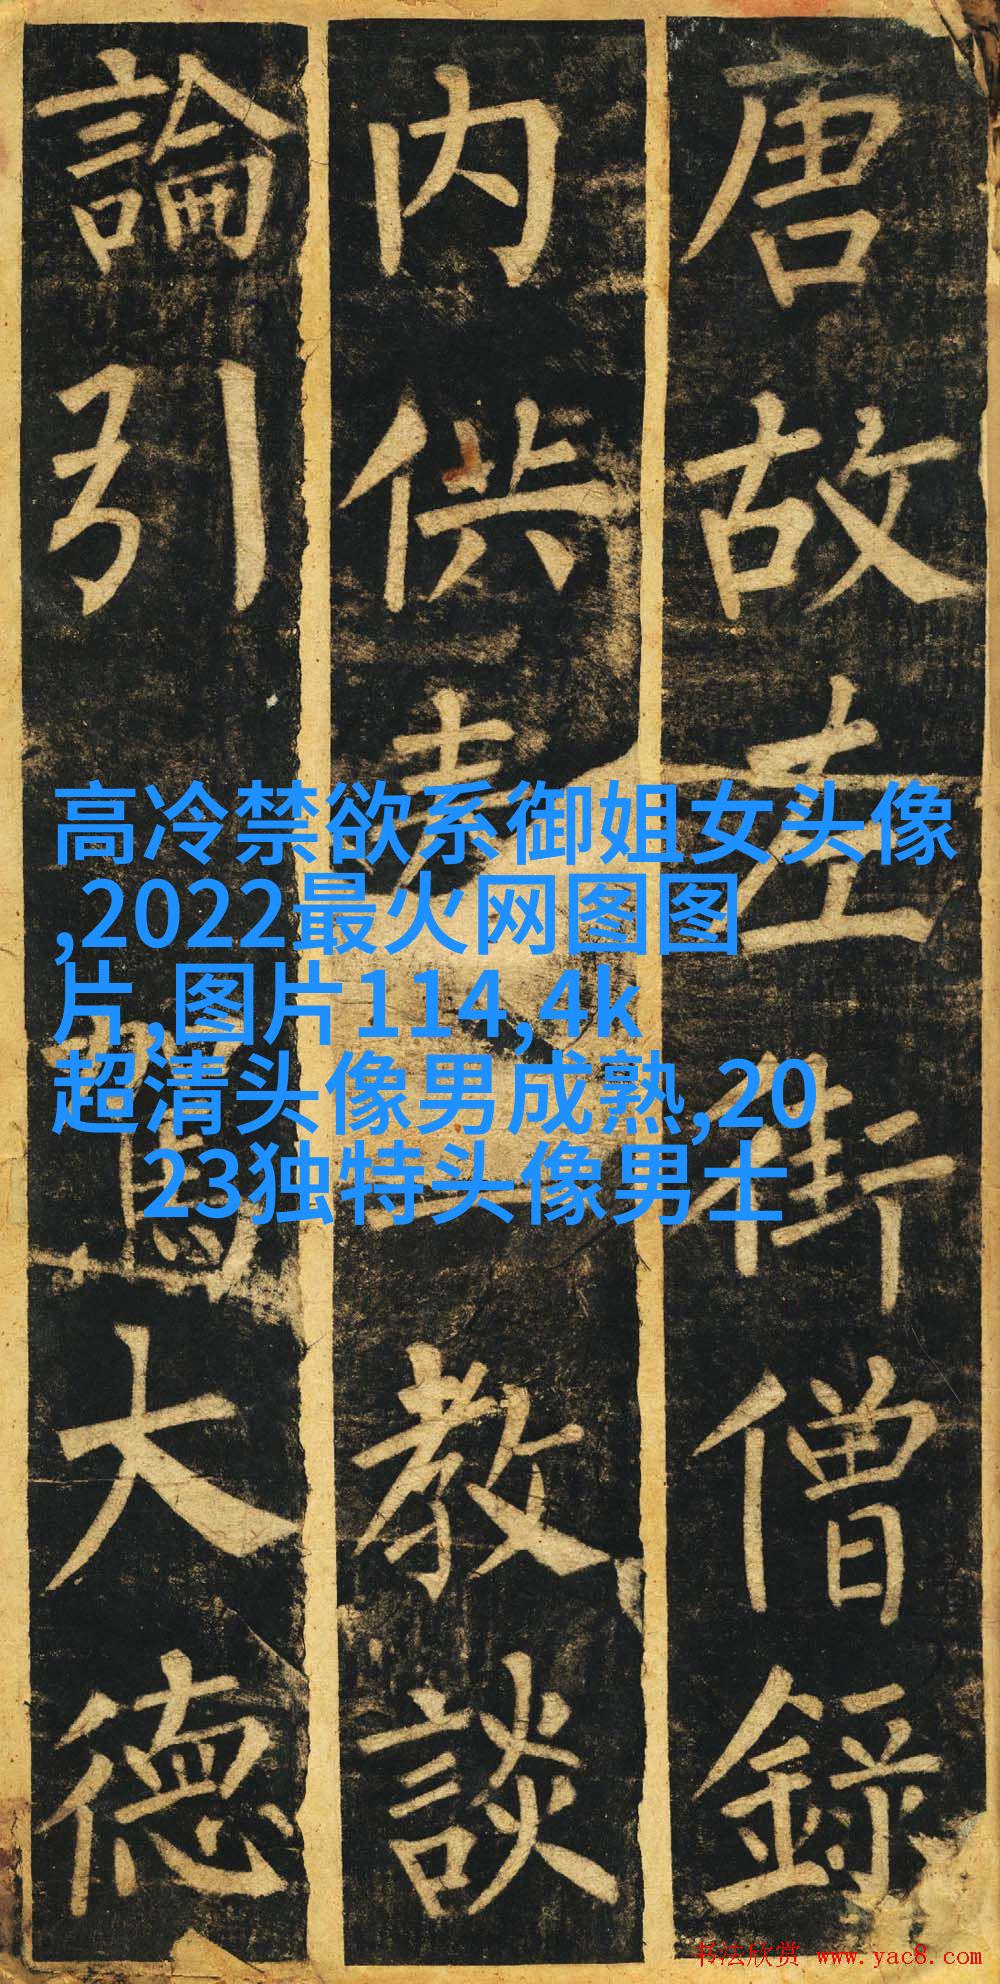 唐故左街僧錄
內供奉三教談
論引駕大德
高冷禁欲系御姐女头像
,2022最火网图图
片,图片114,4k
超清头像男成熟,20
23独特头像男士
书法欣赏 www.yac8.com